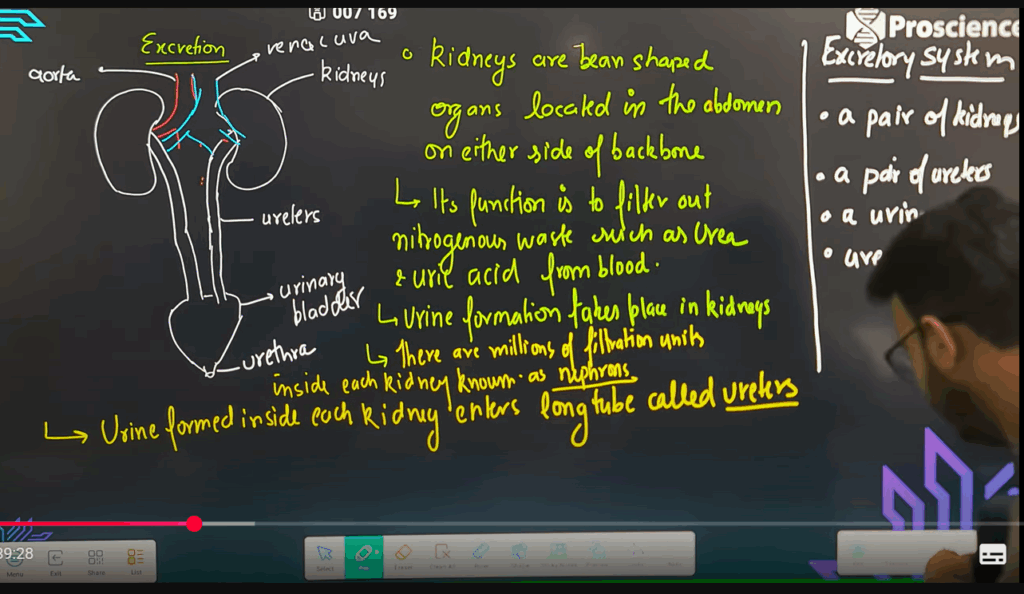 007 169
Proscience
Excretion
aorta
renal cuva
kidneys
ureters
urinary
bladder
urethra
• kidneys are bean shaped
organs located in the abdomen
on either side of backbone
↳ Its function is to filter out
nitrogenous waste such as Urea
& uric acid from blood.
↳ Urine formation takes place in kidneys
↳ There are millions of filtration units
inside each kidney known as nephrons
↳ Urine formed inside each kidney enters long tube called ureters
Excretory system
• a pair of kidneys
• a pair of ureters
• a urin
• ure
39:28
Menu
Exit
Share
List
Select
Pen
Eraser